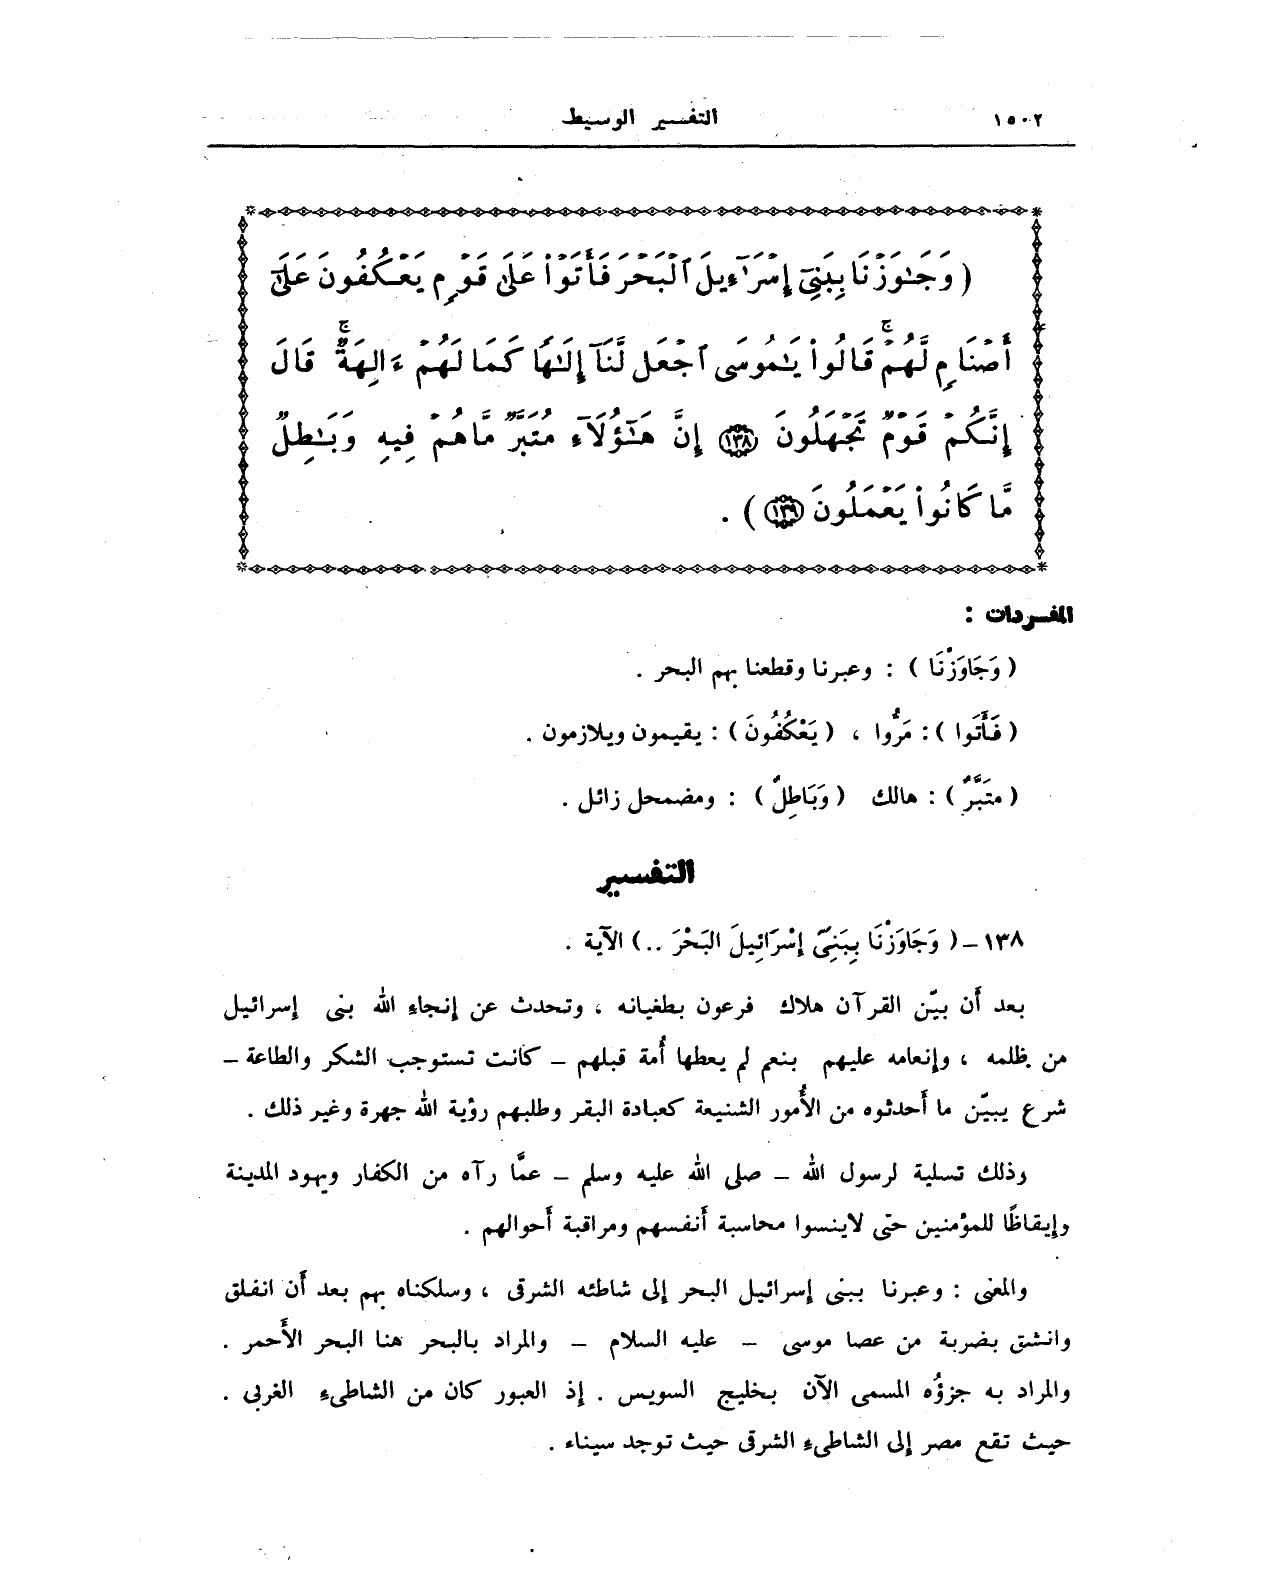 ١٥٠٢ التفسير الوسيط
( وَجَـٰوَزْنَا بِبَنِىٓ إِسْرَٰٓءِيلَ ٱلْبَحْرَ فَأَتَوْا۟ عَلَىٰ قَوْمٍ يَعْكُفُونَ عَلَىٰٓ
أَصْنَامٍ لَّهُمْ ۚ قَالُوا۟ يَـٰمُوسَى ٱجْعَل لَّنَآ إِلَـٰهًا كَمَا لَهُمْ ءَالِهَةٌ ۚ قَالَ
إِنَّكُمْ قَوْمٌ تَجْهَلُونَ ١٣٨ إِنَّ هَـٰٓؤُلَآءِ مُتَبَّرٌ مَّا هُمْ فِيهِ وَبَـٰطِلٌ
مَّا كَانُوا۟ يَعْمَلُونَ ١٣٩ ) .
المفردات :
( وَجَاوَزْنَا ) : وعبرنا وقطعنا بهم البحر .
( فَأَتَوا ) : مَرُّوا ، ( يَعْكُفُونَ ) : يقيمون ويلازمون .
( متَبَّرٌ ) : هالك ( وَبَاطِلٌ ) : ومضمحل زائل .
التفسير
١٣٨ – ( وَجَاوَزْنَا بِبَنِىٓ إِسْرَائِيلَ البَحْرَ .. ) الآية .
بعد أن بيّن القرآن هلاك فرعون بطغيانه ، وتحدث عن إنجاءِ الله بنى إسرائيل
من ظلمه ، وإنعامه عليهم بنعم لم يعطها أُمة قبلهم – كانت تستوجب الشكر والطاعة –
شرع يبيّن ما أَحدثوه من الأُمور الشنيعة كعبادة البقر وطلبهم رؤية الله جهرة وغير ذلك .
وذلك تسلية لرسول الله – صلى الله عليه وسلم – عمَّا رآه من الكفار ويهود المدينة
وإيقاظًا للمؤمنين حتى لاينسوا محاسبة أَنفسهم ومراقبة أَحوالهم .
والمعنى : وعبرنا ببنى إسرائيل البحر إلى شاطئه الشرقى ، وسلكناه بهم بعد أَن انفلق
وانشق بضربة من عصا موسى – عليه السلام – والمراد بالبحر هنا البحر الأَحمر .
والمراد به جزؤُه المسمى الآن بخليج السويس . إذ العبور كان من الشاطىءِ الغربى .
حيث تقع مصر إلى الشاطىءِ الشرقى حيث توجد سيناء .